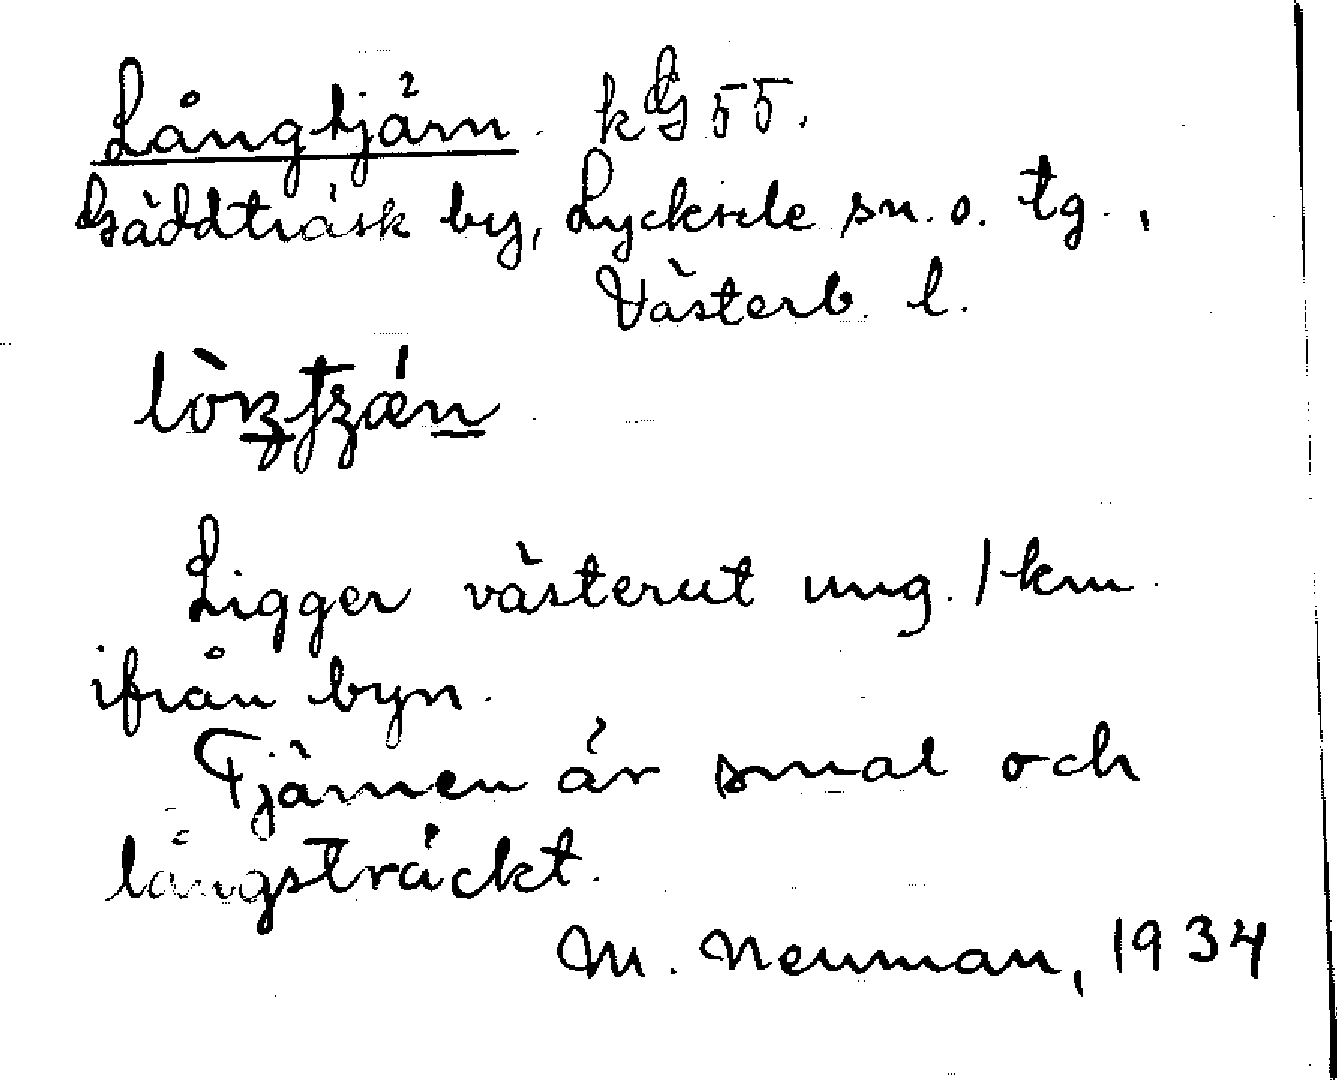 Långtjärn. k G 55.
Gäddträsk by, Lycksele sn. o. tg.,
Västerb. l.
Ligger västerut ung. 1 km
ifrån byn.
Tjärnen är smal och
långsträckt.
M. Neuman, 1934